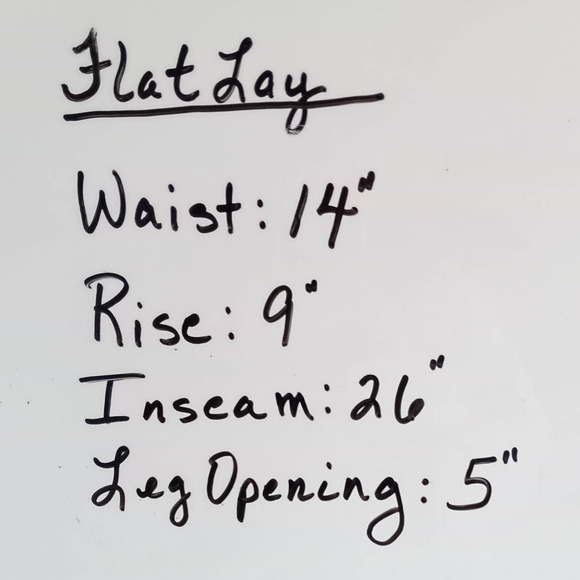 Flat Lay
Waist: 14"
Rise: 9"
Inseam: 26"
Leg Opening: 5"